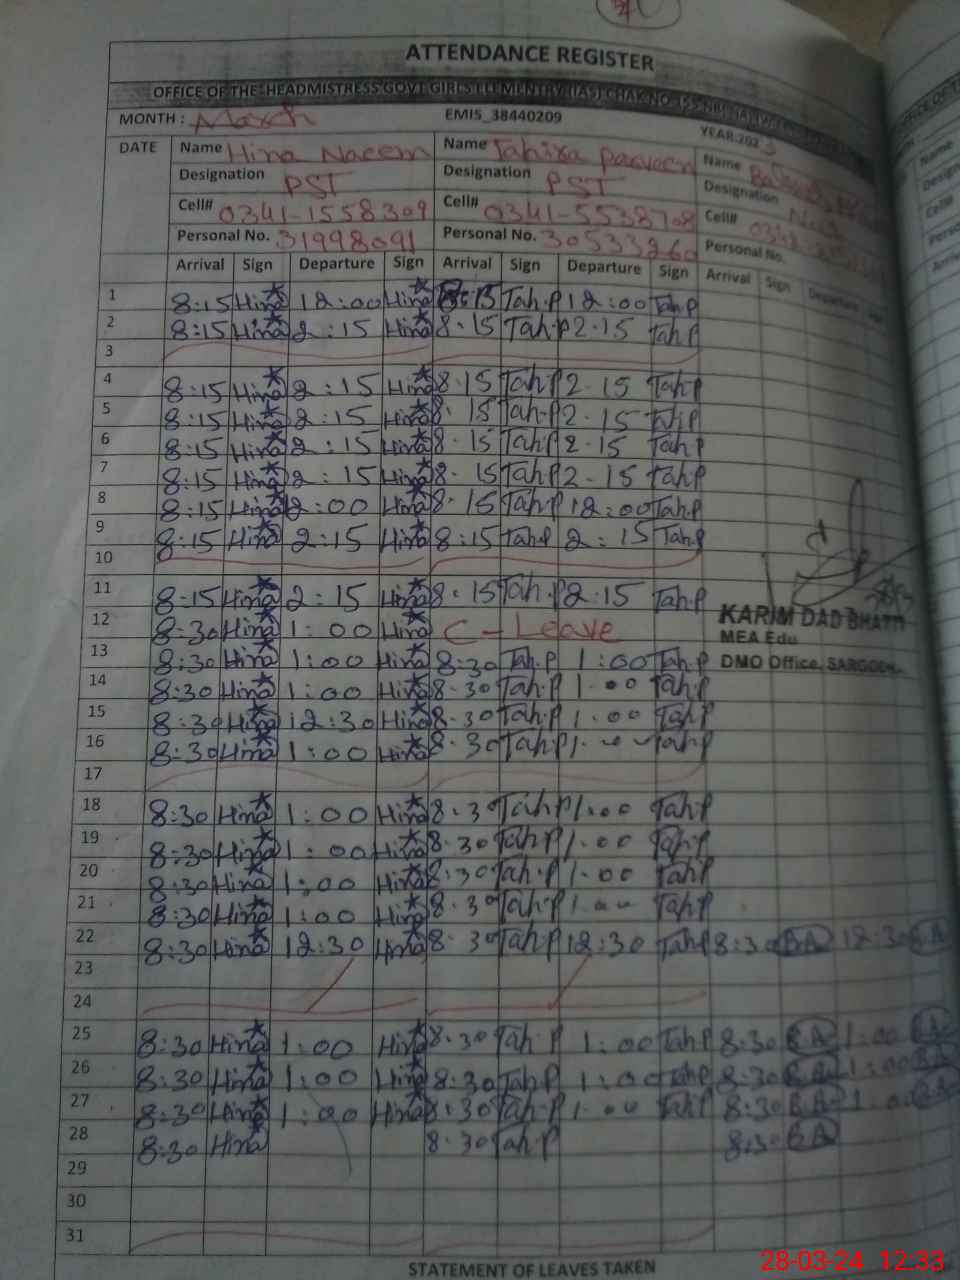 ATTENDANCE REGISTER
OFFICE OF THE HEADMISTRESS GOVT GIRLS ELEMENTRY CHAK NO
MONTH : March EMIS_38440209 YEAR.202
DATE Name Hina Naeem Name Tahira Parveen Name
Designation PST Designation PST Designation
Cell# 0341-1558309 Cell# 0341-5538708 Cell#
Personal No. 31998091 Personal No. 30533260 Personal No.
Arrival Sign Departure Sign Arrival Sign Departure Sign Arrival Sign Departure
1 8:15 Hina 12:00 Hina 8:15 Tah.P 12:00 Tah.P
2 8:15 Hina 2:15 Hina 8.15 Tah.P 2.15 Tah.P
3
4 8:15 Hina 2:15 Hina 8.15 Tah.P 2.15 Tah.P
5 8:15 Hina 2:15 Hina 8.15 Tah.P 2.15 Tah.P
6 8:15 Hina 2:15 Hina 8.15 Tah.P 2.15 Tah.P
7 8:15 Hina 2:15 Hina 8.15 Tah.P 2.15 Tah.P
8 8:15 Hina 12:00 Hina 8.15 Tah.P 12:00 Tah.P
9 8:15 Hina 2:15 Hina 8:15 Tah.P 2:15 Tah.P
10
11 8:15 Hina 2:15 Hina 8.15 Tah.P 2.15 Tah.P
12 8:30 Hina 1:00 Hina C-Leave
KARIM DAD BHATTI
MEA Edu
13 8:30 Hina 1:00 Hina 8:30 Tah.P 1:00 Tah.P
DMO Office, SARGODHA
14 8:30 Hina 1:00 Hina 8.30 Tah.P 1.00 Tah.P
15 8:30 Hina 12:30 Hina 8.30 Tah.P 1.00 Tah.P
16 8:30 Hina 1:00 Hina 8.30 Tah.P 1.00 Tah.P
17
18 8:30 Hina 1:00 Hina 8.30 Tah.P 1.00 Tah.P
19 8:30 Hina 1:00 Hina 8.30 Tah.P 1.00 Tah.P
20 8:30 Hina 1:00 Hina 8.30 Tah.P 1.00 Tah.P
21 8:30 Hina 1:00 Hina 8.30 Tah.P 1.00 Tah.P
22 8:30 Hina 12:30 Hina 8.30 Tah.P 12:30 Tah.P 8:30 B.A 12.30 B.A
23
24
25 8:30 Hina 1:00 Hina 8.30 Tah.P 1:00 Tah.P 8:30 B.A 1:00 B.A
26 8:30 Hina 1:00 Hina 8.30 Tah.P 1:00 Tah.P 8:30 B.A 1:00 B.A
27 8:30 Hina 1:00 Hina 8.30 Tah.P 1.00 Tah.P 8:30 B.A 1:00 B.A
28 8:30 Hina 8.30 Tah.P 8:30 B.A
29
30
31
STATEMENT OF LEAVES TAKEN
28-03-24 12:33